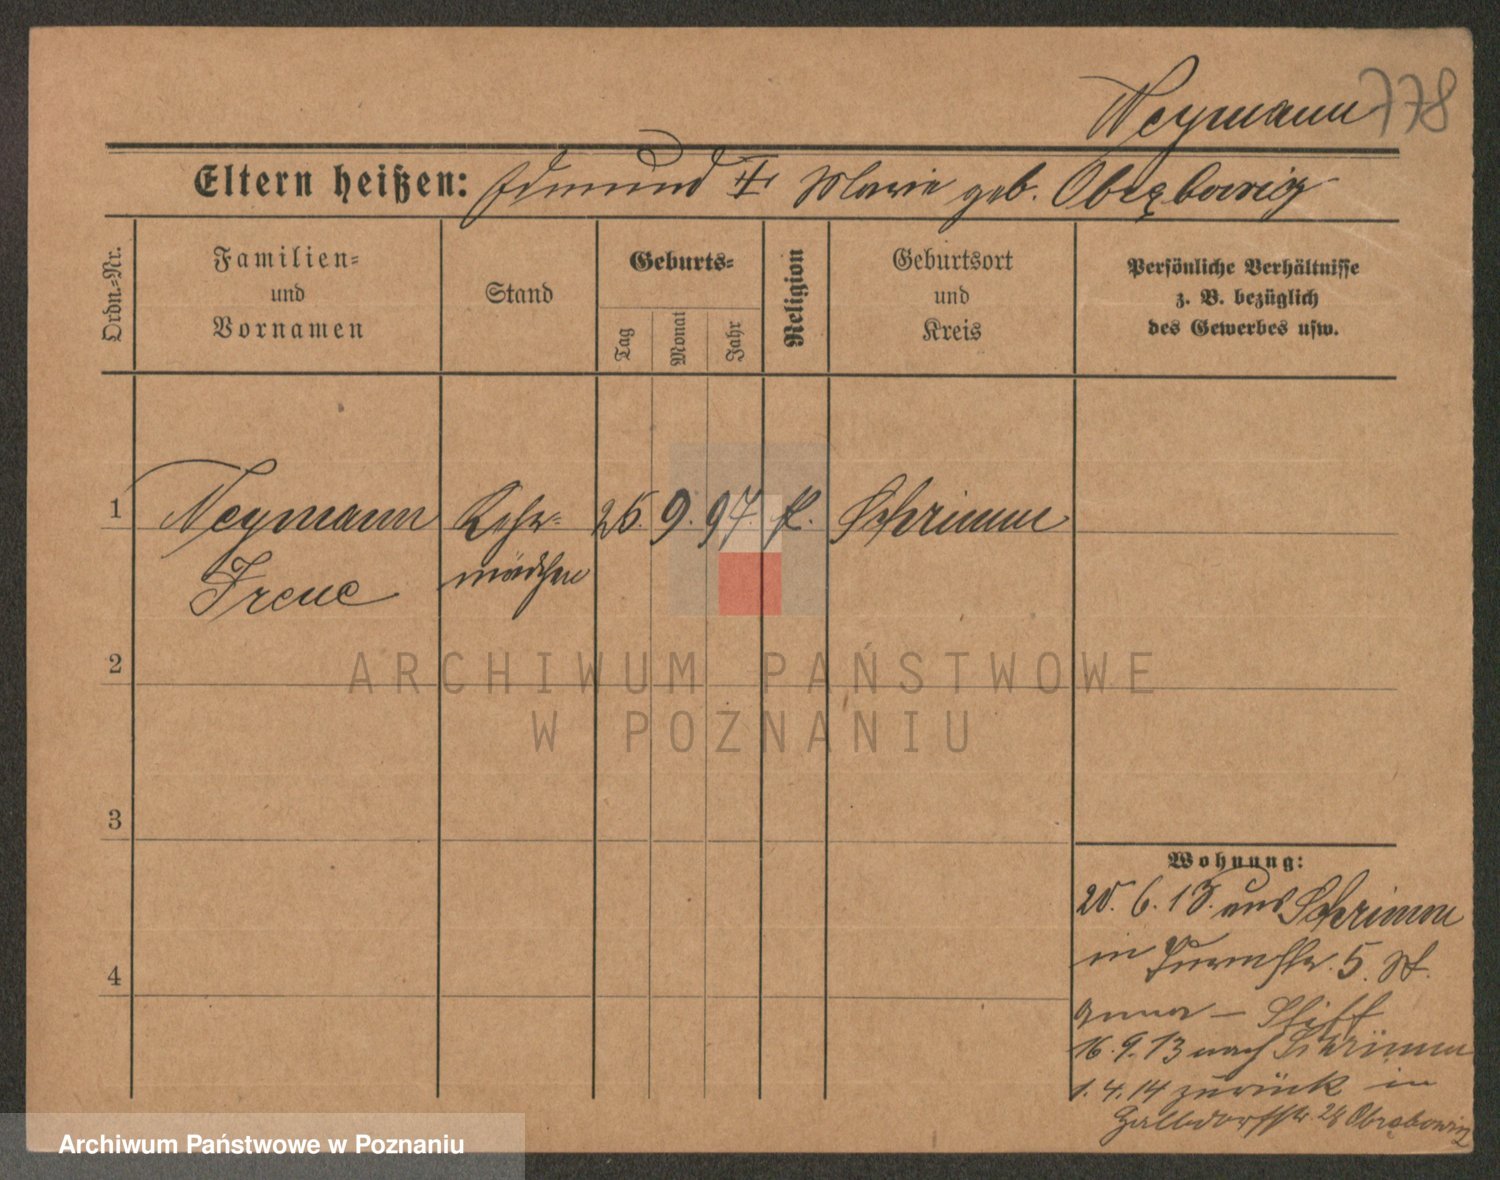 Neymann 778
Eltern heißen: Edmund ‡ Marie geb. Obrębowicz
Ordn.-Nr.
Familien-
und
Vornamen
Stand
Geburts-
Tag
Monat
Jahr
Religion
Geburtsort
und
Kreis
Persönliche Verhältnisse
z. B. bezüglich
des Gewerbes usw.
1 Neymann Lehr- 26. 9. 97. k. Schrimm
Irene mädchen
2
3
4
Wohnung:
20. 6. 13. aus Schrimm
in 5. St.
Anna — Stift
16. 9. 13 nach Schrimm
1. 4. 14 zurück in
Halbdorfstr. 28 Obrębowicz
ARCHIWUM PAŃSTWOWE
W POZNANIU
Archiwum Państwowe w Poznaniu